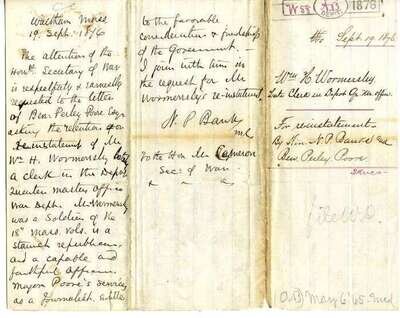 Waltham Mass
19. Sept. 1876
The attention of the
Honl. Secretary of War
is respectfully & earnestly
requested to the letter
of Ben: Perley Poore Esq.
asking the retention or
reinstatement of Mr
Wm H. Woormersley
a clerk in the Depot
Quarter master office
War Dept. Mr Wormersley
was a Soldier of the
18th Mass. Vols. is a
staunch republican,
and a capable and
faithful officer.
Major Poore's services
as a Journalist entitle
to the favorable
consideration & friendship
of the Government.
I join with him in
the request for Mr
Woormersley's re-instatement,
N. P. Banks
M.C.
To the Hon Mr Cameron
Sec: of War.
1876
Sept. 19. 1876
Wm H. Woomersley
Late Clerk in Depot Qr Mr office
For reinstatement.
By Hon. N. P. Banks and
Ben. Perley Poore
file W.D.
May 6 '65